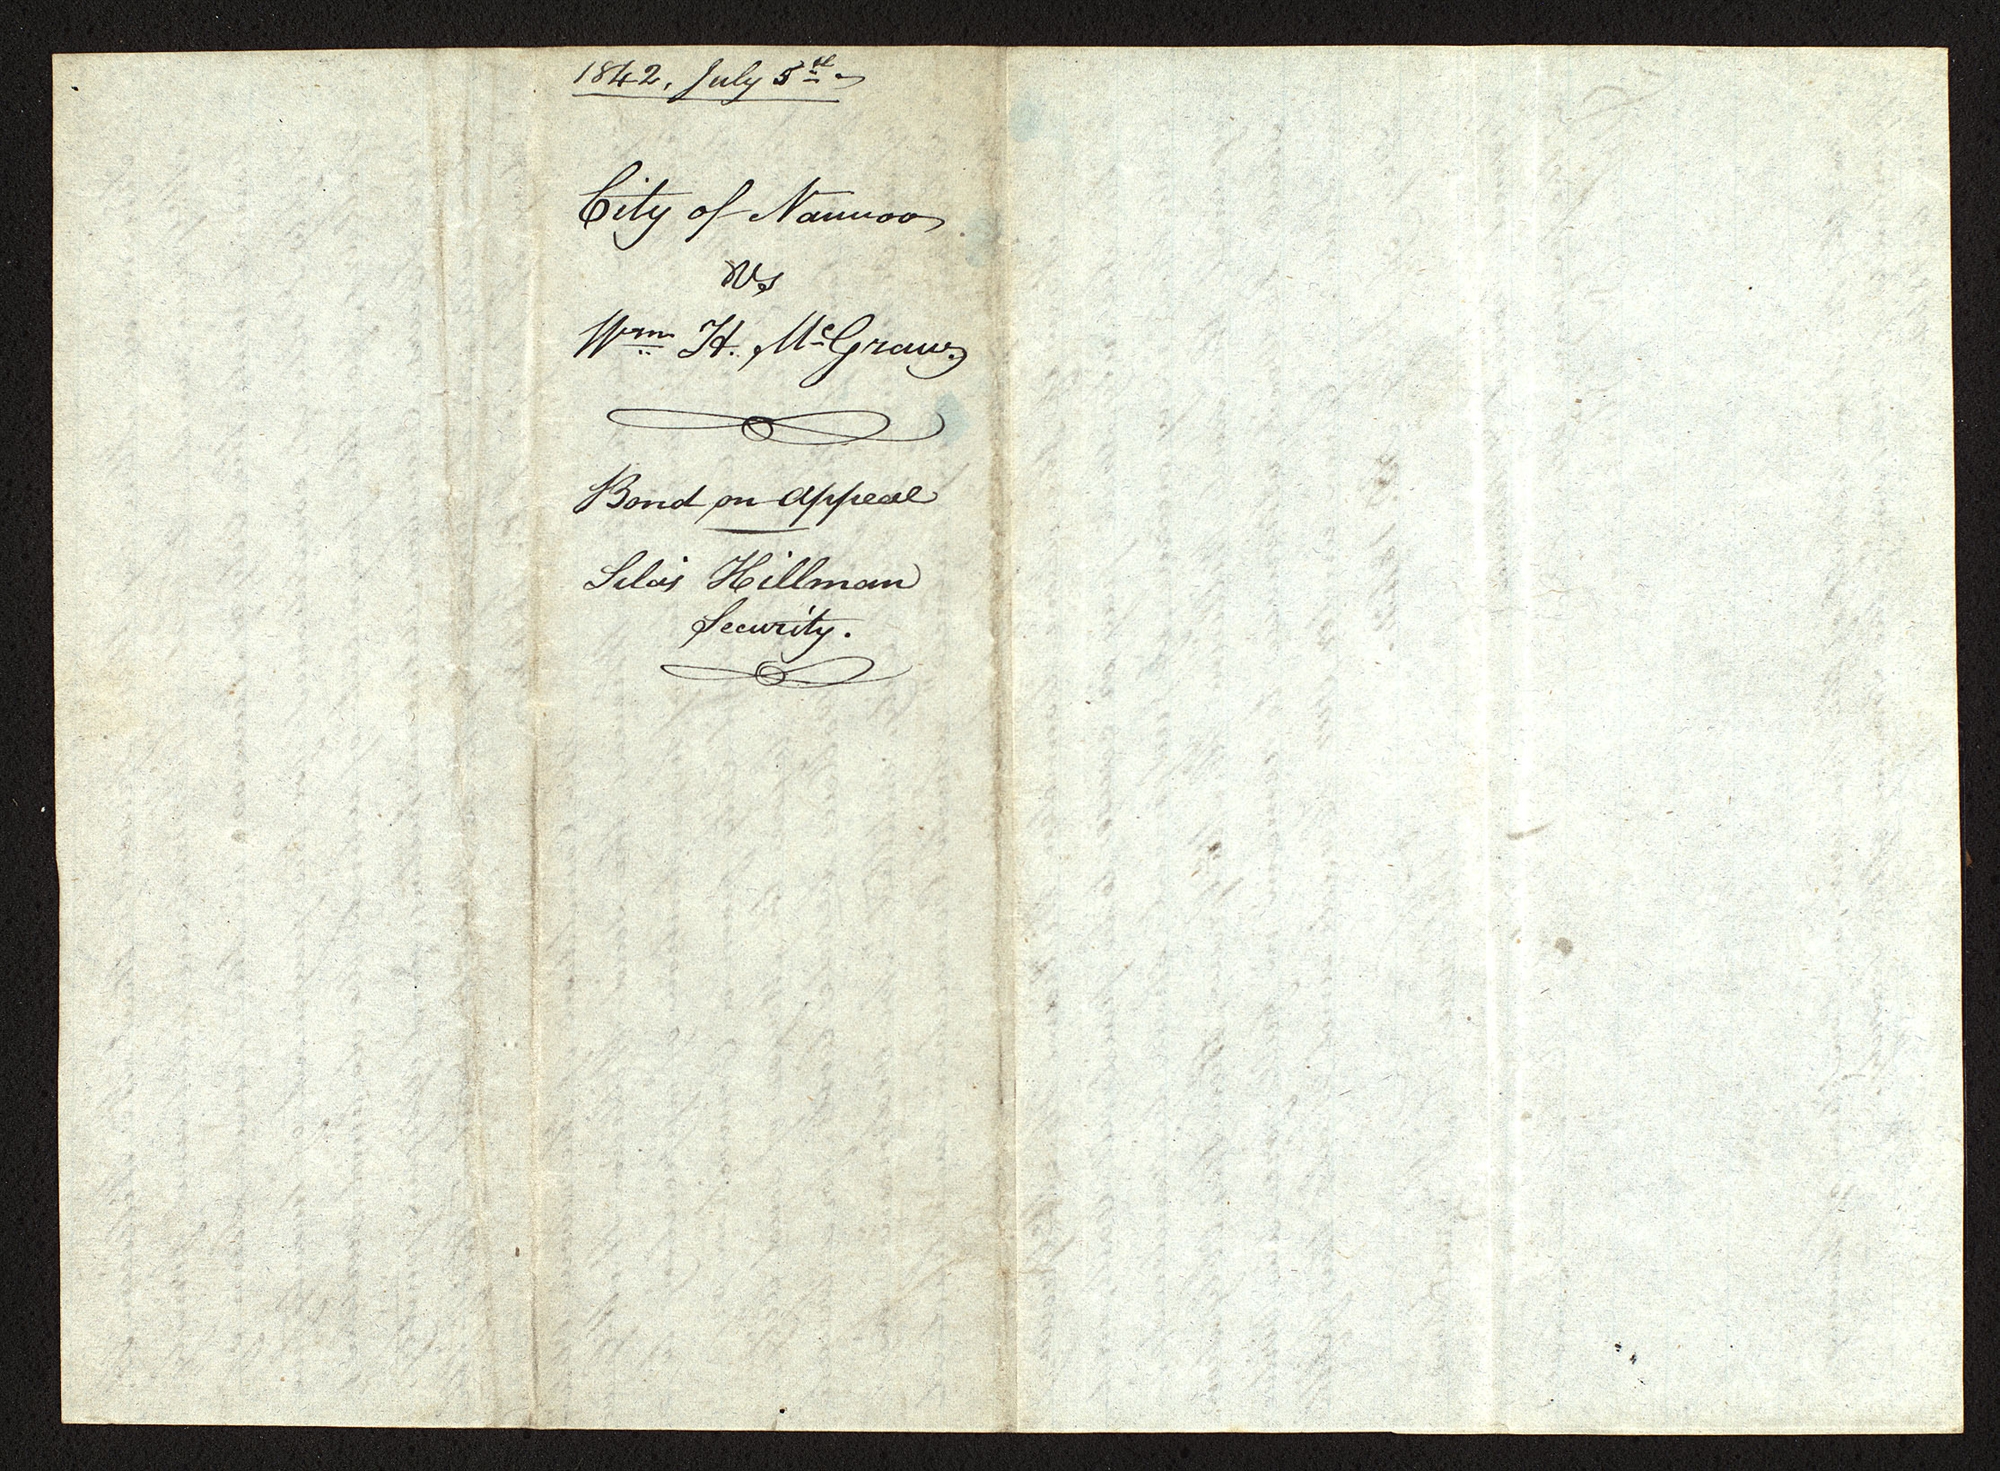 1842, July 5th
City of Nauvoo
vs
Wm H. McGraw
Bond on Appeal
Silas Hillman
Security.